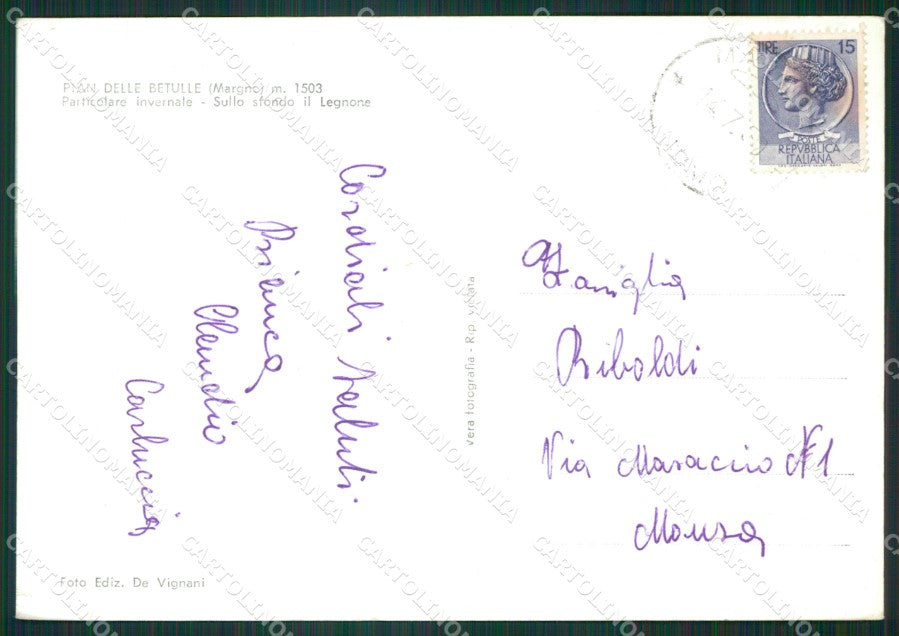 PIAN DELLE BETULLE (Margno) m. 1503
Particolare invernale - Sullo sfondo il Legnone
Cordiali saluti
Bianca
Claudio
Carluccia
Foto Ediz. De Vignani
vera fotografia - Rip. vietata
LIRE 15
POSTE
REPVBBLICA
ITALIANA
Famiglia
Riboldi
Via Masaccio N°1
Monza
CARTOLINOMANIA